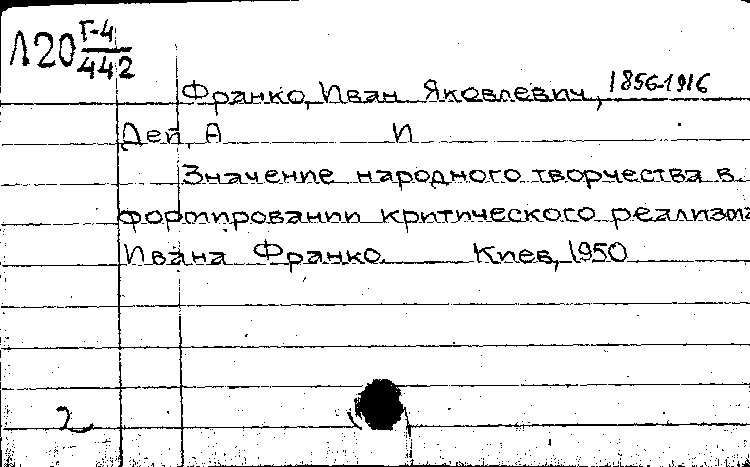 Л20 Г-4/442
Франко, Иван Яковлевич, 1856-1916
Дей, А И
Значение народного творчества в
формировании критического реализма
Ивана Франко. Киев, 1950
2